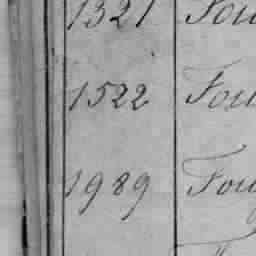 1321 Fou
1522 Fou
1989 Fou